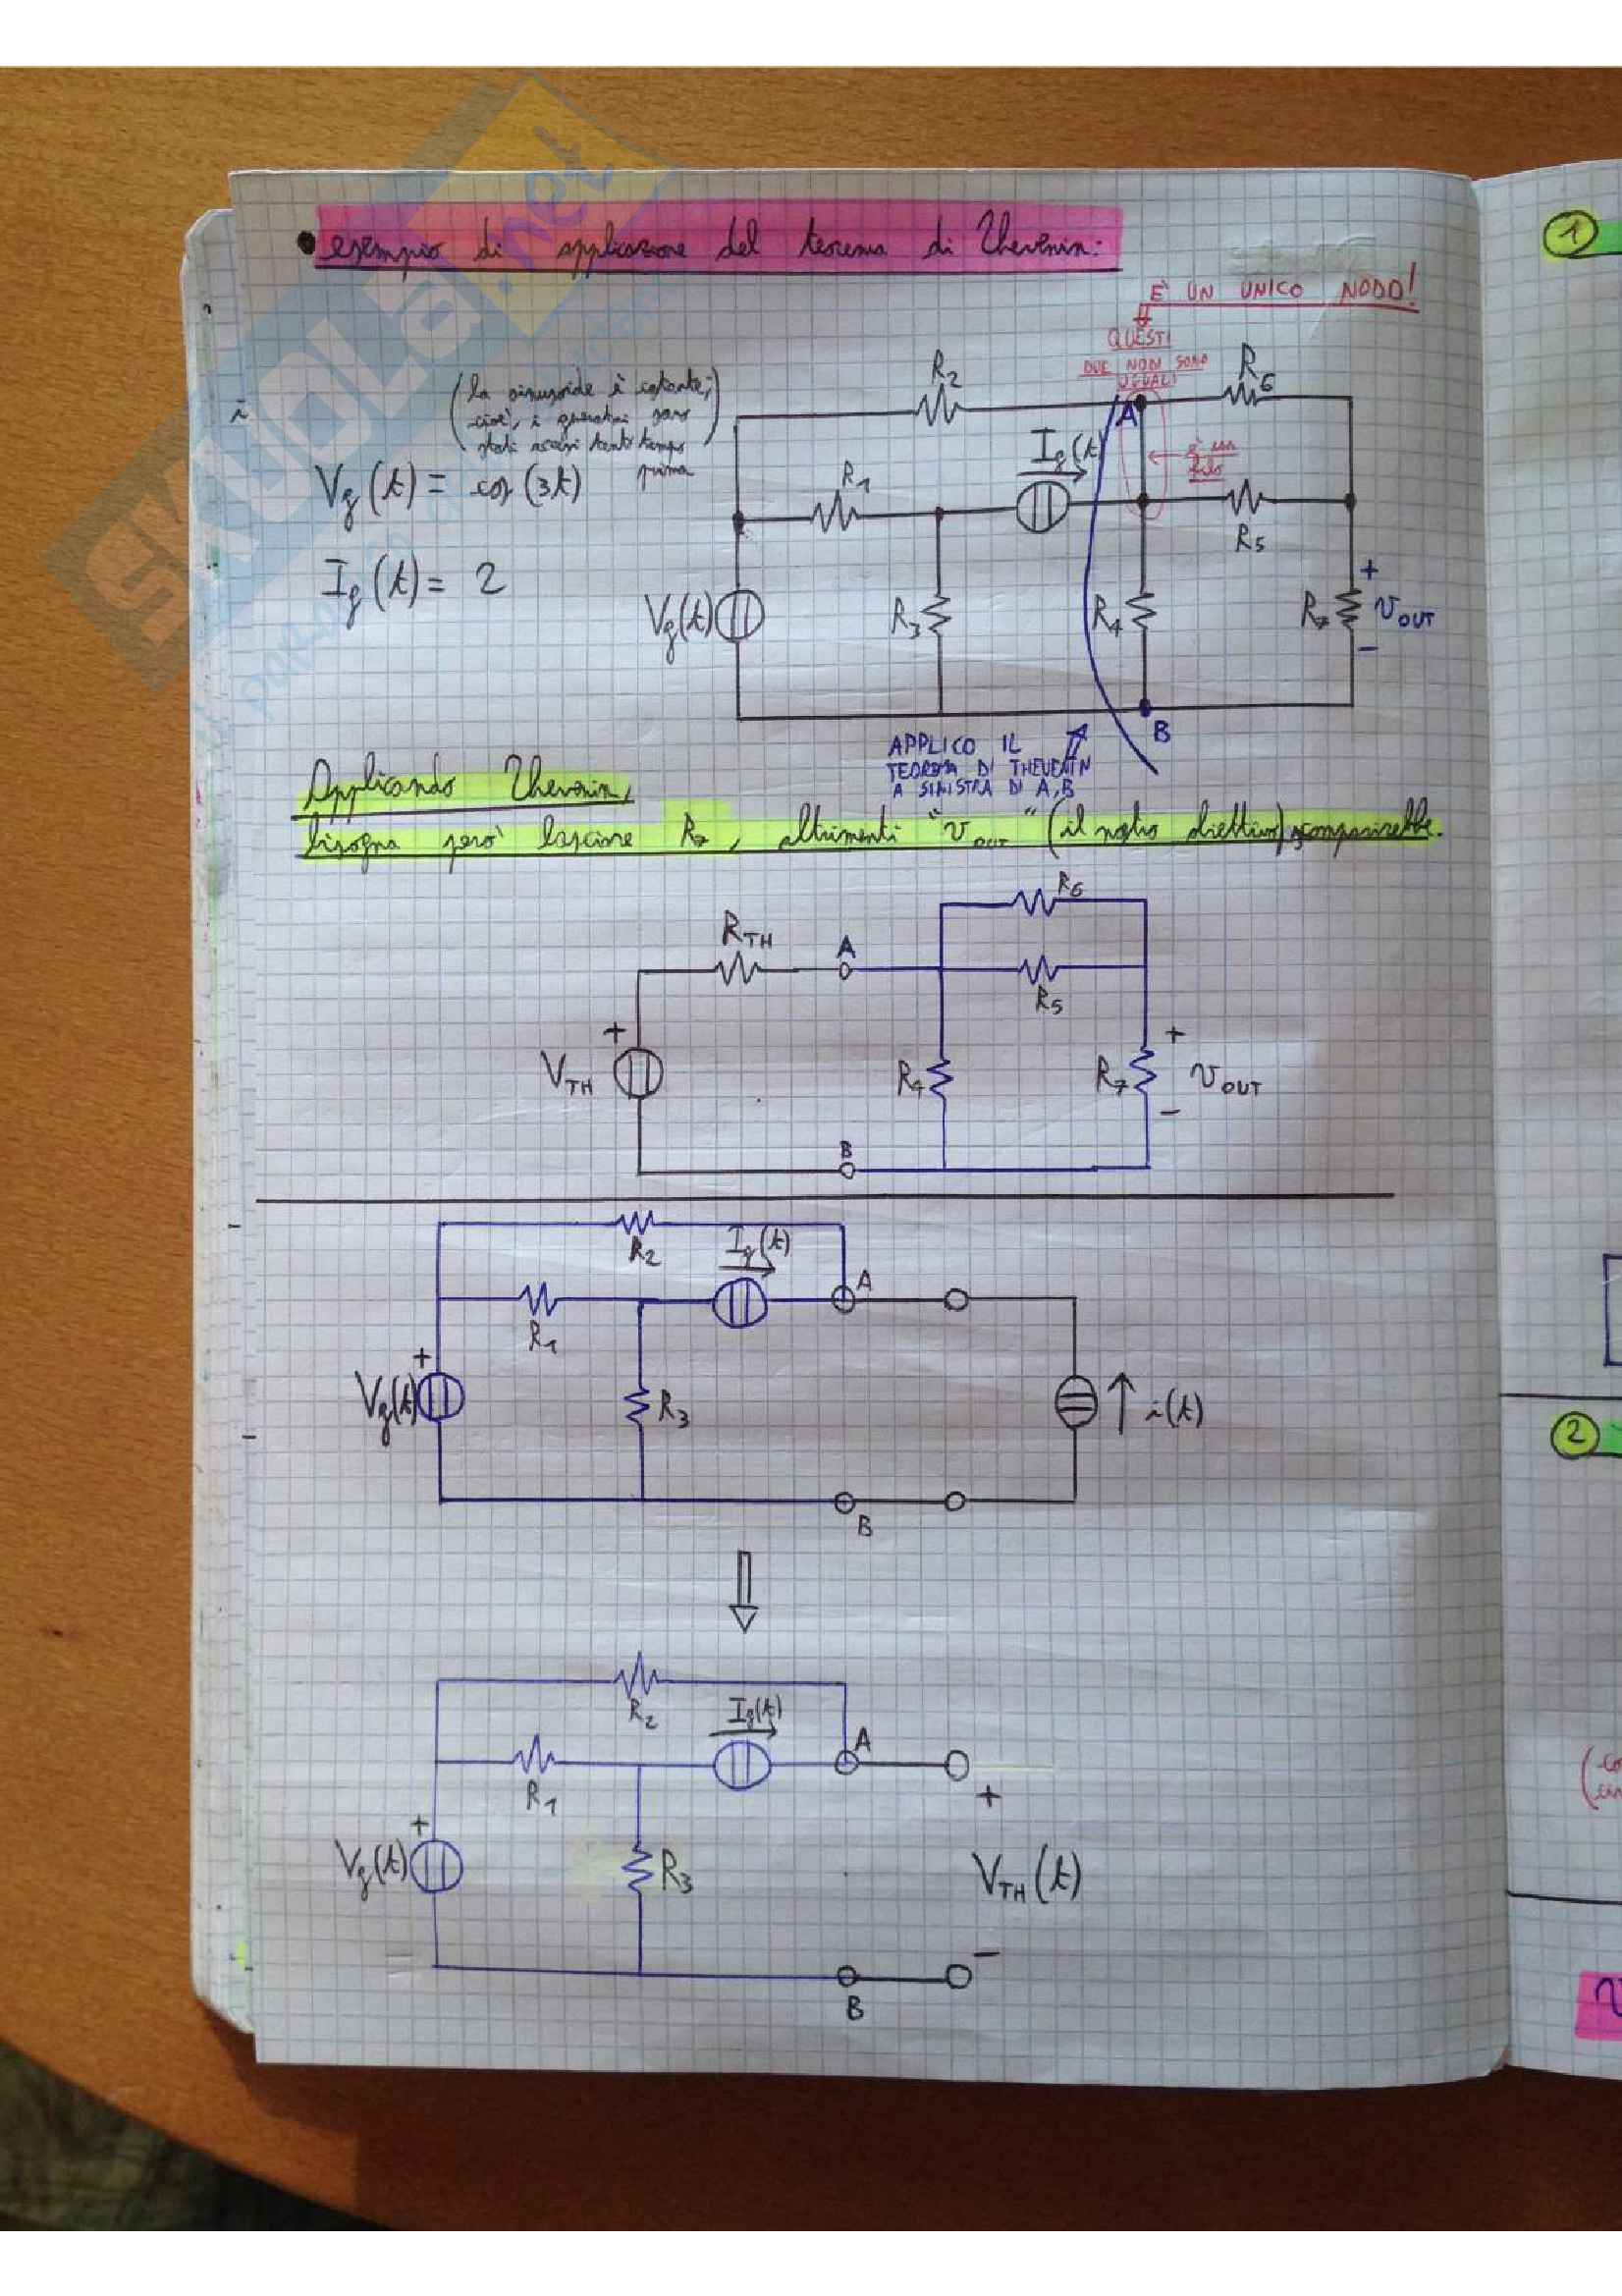 • esempio di applicazione del teorema di Thevenin:
È UN UNICO NODO!
QUESTI
DUE NODI SONO
UGUALI
(la sinusoide è costante;
cioè, i generatori sono
stati accesi tanto tempo
prima)
Vg(t) = cos(3t)
Ig(t) = 2
R2
A
R6
Ig(t)
R1
R5
Vg(t)
R3
R4
R7
+
vOUT
-
B
APPLICO IL
TEOREMA DI THEVENIN
A SINISTRA DI A,B
Applicando Thevenin,
bisogna però lasciare R7, altrimenti "vOUT" (il nostro obiettivo) scomparirebbe.
R6
RTH
A
R5
+
VTH
R4
R7
+
vOUT
-
B
R2
Ig(t)
A
R1
+
Vg(t)
R3
i(t)
B
R2
Ig(t)
A
R1
+
+
Vg(t)
R3
VTH(t)
-
B
1
2
SKUOLA.net